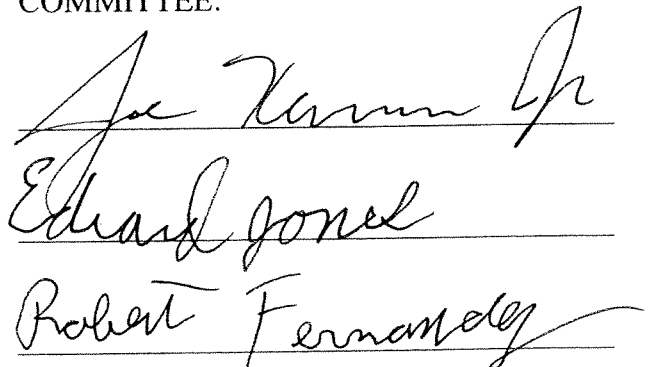 COMMITTEE:
Joe Jr
Edward Jones
Robert Fernandez